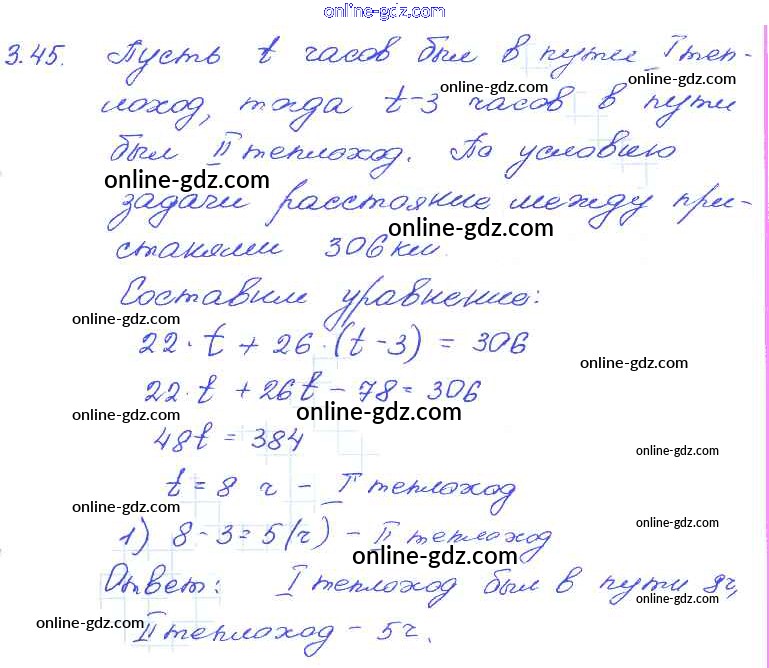 online-gdz.com
3.45. Пусть t часов был в пути I теп-
online-gdz.com
online-gdz.com
лоход, тогда t-3 часов в пути
был II теплоход. По условию
online-gdz.com
задачи расстояние между при-
online-gdz.com
станями 306 км.
Составим уравнение:
online-gdz.com
22·t + 26·(t-3) = 306
online-gdz.com
22·t + 26t - 78 = 306
online-gdz.com
online-gdz.com
48t = 384
online-gdz.com
t = 8 ч - I теплоход
online-gdz.com
online-gdz.com
1) 8-3=5(ч) - II теплоход
online-gdz.com
Ответ: I теплоход был в пути 8ч,
online-gdz.com
online-gdz.com
II теплоход - 5ч.